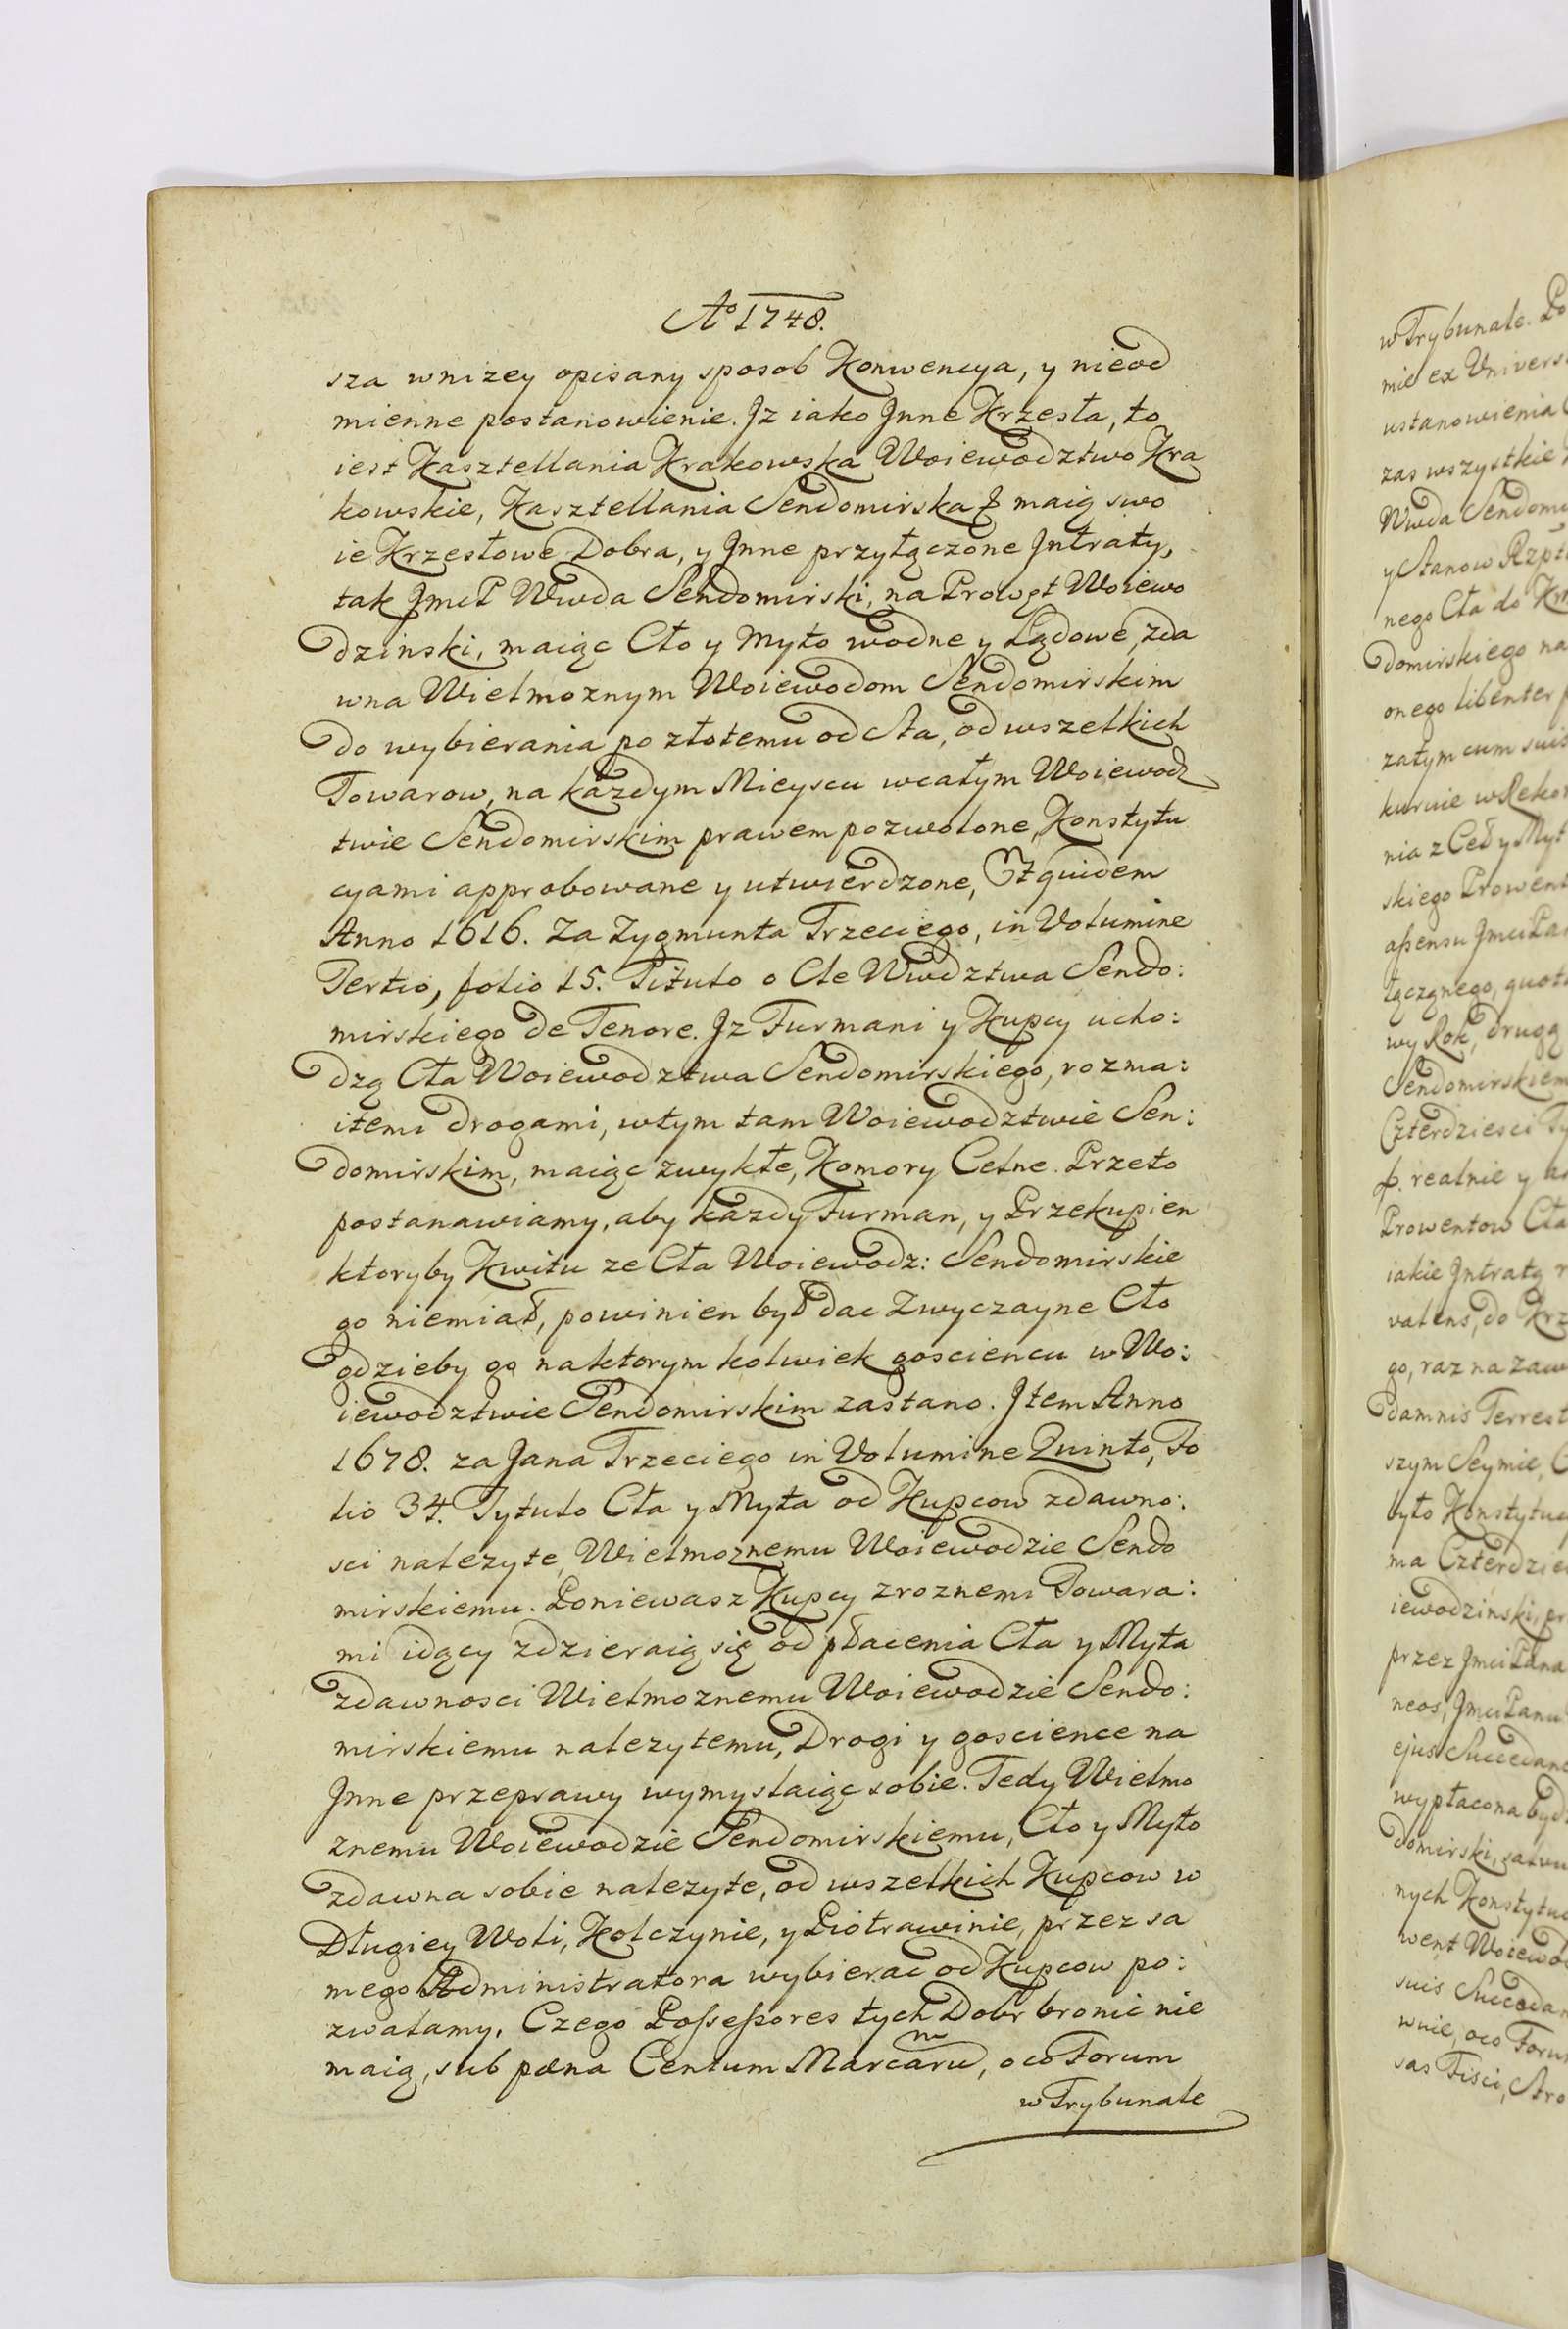 Ao 1748.
sza wnizey opisany sposob Konwencya, y nieod
mienne postanowienie. Jz iako Jnne Krzesła, to
iest Kasztellania Krakowska Woiewodztwo Kra
kowskie, Kasztellania Sendomirska & maią swo
ie Krzesłowe Dobra, y Jnne przyłączone Jntraty,
tak JmcP Wwda Sendomirski, na Prowęt Woiewo
dzinski, maiąc Cło y Myto wodne y Lądowe, zda
wna Wielmoznym Woiewodom Sendomirskim
do wybierania po złotemu od Sta, od wszelkich
Towarow, na kazdym Mieyscu wcałym Woiewodz
twie Sendomirskim prawem pozwolone, Konstytu
cyami approbowane y utwierdzone, Et quidem
Anno 1616. Za Zygmunta Trzeciego, in Volumine
Tertio, folio 15. Titulo o Cle Wwdztwa Sendo:
mirskiego de Tenore. Jz Furmani y Kupcy ucho:
dzą Cła Woiewodztwa Sendomirskiego, rozma:
item drogami, wtym tam Woiewodztwie Sen:
domirskim, maiąc zwykłe, Komory Celne. Przeto
postanawiamy, aby kazdy Furman, y Przekupien
ktoryby Kwitu ze Cła Woiewodz: Sendomirskie
go niemiał, powinien był dac Zwyczayne Cło
gdzieby go naktorym kolwiek gosciencu w Wo:
iewodztwie Sendomirskim zastano. Jtem Anno
1678. za Jana Trzeciego in Volumine Quinto, Fo
lio 34. Tytulo Cła y Myta od Kupcow zdawno:
sci nalezyte, Wielmoznemu Woiewodzie Sendo
mirskiemu. Poniewasz Kupcy zroznemi Towara:
mi idący zdzieraią się od płacenia Cła y Myta
zdawnosci Wielmoznemu Woiewodzie Sendo:
mirskiemu nalezytemu, Drogi y goscience na
Jnne przeprawy wymyslaiąc sobie. Tedy Wielmo
znemu Woiewodzie Sendomirskiemu, Cło y Myto
zdawna sobie nalezyte, od wszelkich Kupcow w
Długiey Woli, Kolczynie, y Piotrawinie, przez sa
mego Administratora wybierac od Kupcow po:
zwalamy. Czego Possessores tych Dobr bronic nie
maią, sub pæna Centum Marcaru, oco Forum
w Trybunale
w Trybunale. Po
mie ex Universi
ustanowienia
zas wszystkie
Wwda Sendomi
y Stanow Rzplt
nego Cła do Krz
domirskiego na
onego libenter
zatym cum suis
kursie w Rekor
nia z Ceł y Myt
skiego Prowent
assensu Jmci Pan
łączgnego, quot
wy Rok, drugą
Sendomirskiem
Czterdziesci Ty
realnie y
Prowentow Cła
iakie Jntraty
valens, do Krz
go, raz na zaw
damnis Terrest
szym Seymie,
było Konstytuc
ma Czterdzie
iewodzinski, pr
przez Jmci Pana
neos, Jmci Panu
ejus Succedane
wypłacona będ
domirski, salvu
nych Konstytuc
went Woiewod
suis Succedan
wnie, oco Forum
sas Fisci,